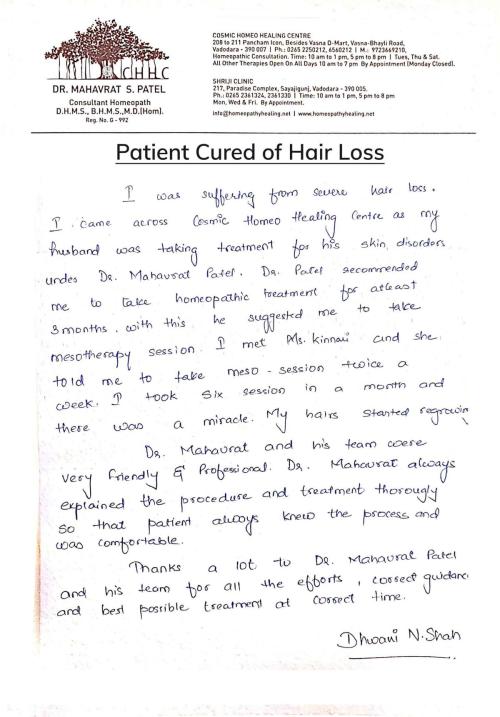 CHHC
DR. MAHAVRAT S. PATEL
Consultant Homeopath
D.H.M.S., B.H.M.S.,M.D.(Hom).
Reg. No. G - 992
COSMIC HOMEO HEALING CENTRE
208 to 211 Pancham Icon, Besides Vasna D-Mart, Vasna-Bhayli Road,
Vadodara - 390 007 | Ph.: 0265 2250212, 6560212 | M.: 9723669210,
Homeopathic Consultation. Time: 10 am to 1 pm, 5 pm to 8 pm | Tues, Thu & Sat.
All Other Therapies Open On All Days 10 am to 7 pm By Appointment (Monday Closed).
SHRIJI CLINIC
217, Paradise Complex, Sayajigunj, Vadodara - 390 005.
Ph.: 0265 2361324, 2361330 | Time: 10 am to 1 pm, 5 pm to 8 pm
Mon, Wed & Fri. By Appointment.
info@homeopathyhealing.net | www.homeopathyhealing.net
Patient Cured of Hair Loss
I was suffering from severe hair loss.
I came across Cosmic Homeo Healing Centre as my
husband was taking treatment for his skin disorders
under Dr. Mahavrat Patel. Dr. Patel recommended
me to take homeopathic treatment for atleast
3 months. with this he suggested me to take
mesotherapy session. I met Ms. Kinnari and she
told me to take meso-session twice a
week. I took six session in a month and
there was a miracle. My hairs started regrowin
Dr. Mahavrat and his team were
very friendly & Professional. Dr. Mahavrat always
explained the procedure and treatment thorougly
so that patient always knew the process and
was comfortable.
Thanks a lot to Dr. Mahavrat Patel
and his team for all the efforts, correct guidanc
and best possible treatment at correct time.
Dhwani N. Shah